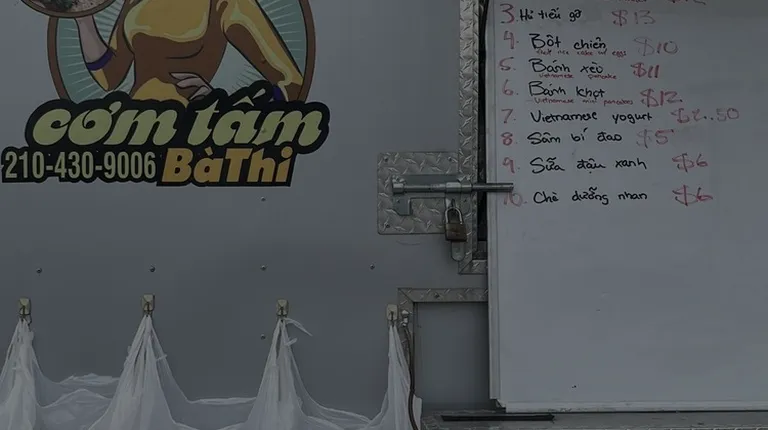 cơm tấm
210-430-9006 BàThi
3. Hủ tiếu gõ $13
4. Bột chiên $10
5. Bánh xèo $11
vietnamese pancake
6. Bánh khọt $12
vietnamese mini pancakes
7. Vietnamese yogurt $2..50
8. Sâm bí đao $5
9. Sữa đậu xanh $6
10. Chè dưỡng nhan $6